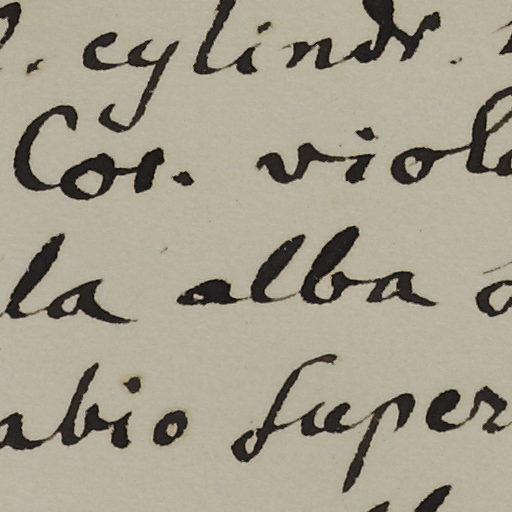 . cylindr.
Cor. viol
la alba
abio super